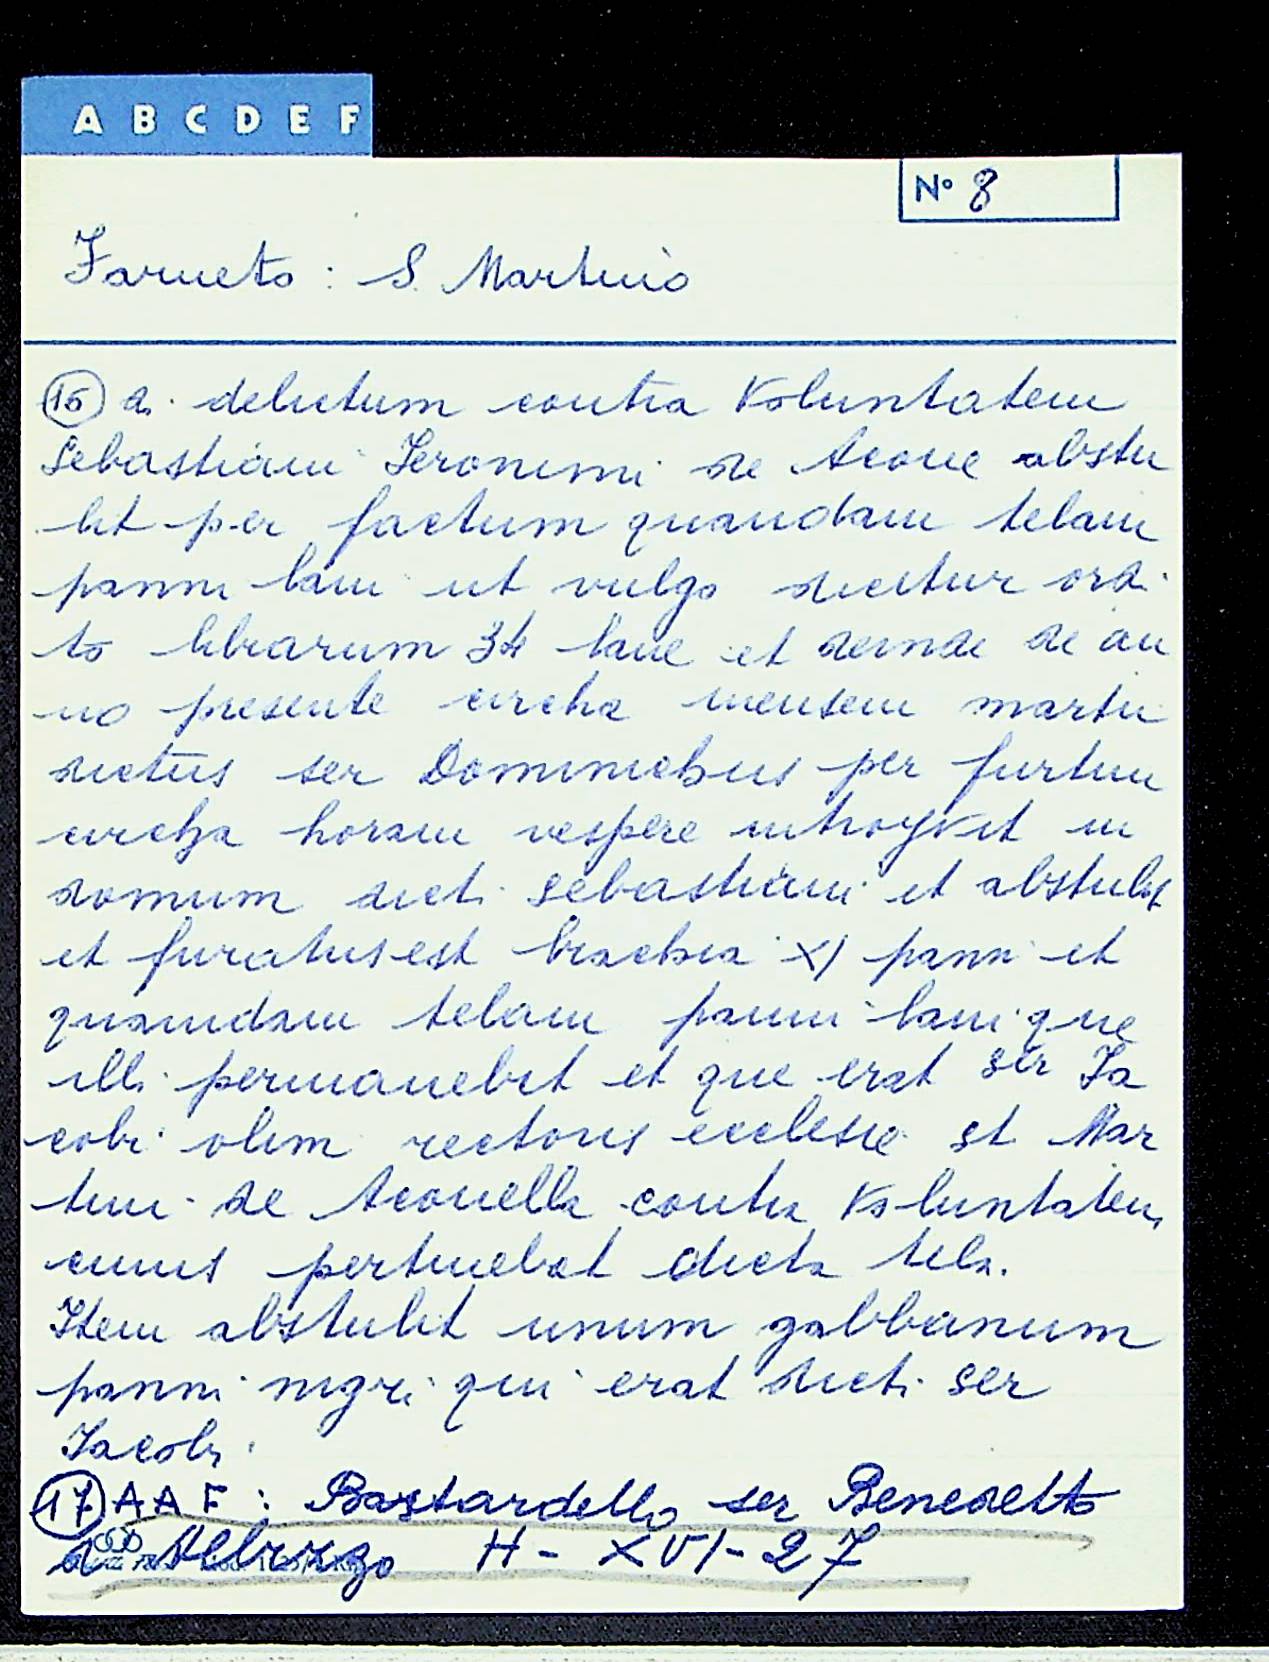 A B C D E F
Nº 8
Farneto : S. Martino
16 a. delictum contra voluntatem
Sebastiani Ieronimi de Acone abstu
lit per factum quandam telam
panni lani ut vulgo dicitur ordi
to librarum 34 lane et deinde de an
no presente circha mensem martii
dictus ser Dominichus per furtum
circha horam vespere introyvit in
domum dicti Sebastiani et abstulit
et furatus est brachia XI panni et
quamdam telam panni lani que
illi permanebit et que erat ser Ia
cobi olim rectoris ecclesie st Mar
tini de Aconella contra voluntatem
cuius pertinebat dicta tela.
Item abstulit unum gabbanum
panni nigri qui erat dicti ser
Iacobi.
17 A A F : Bastardello ser Benedetto
H - XVI - 27